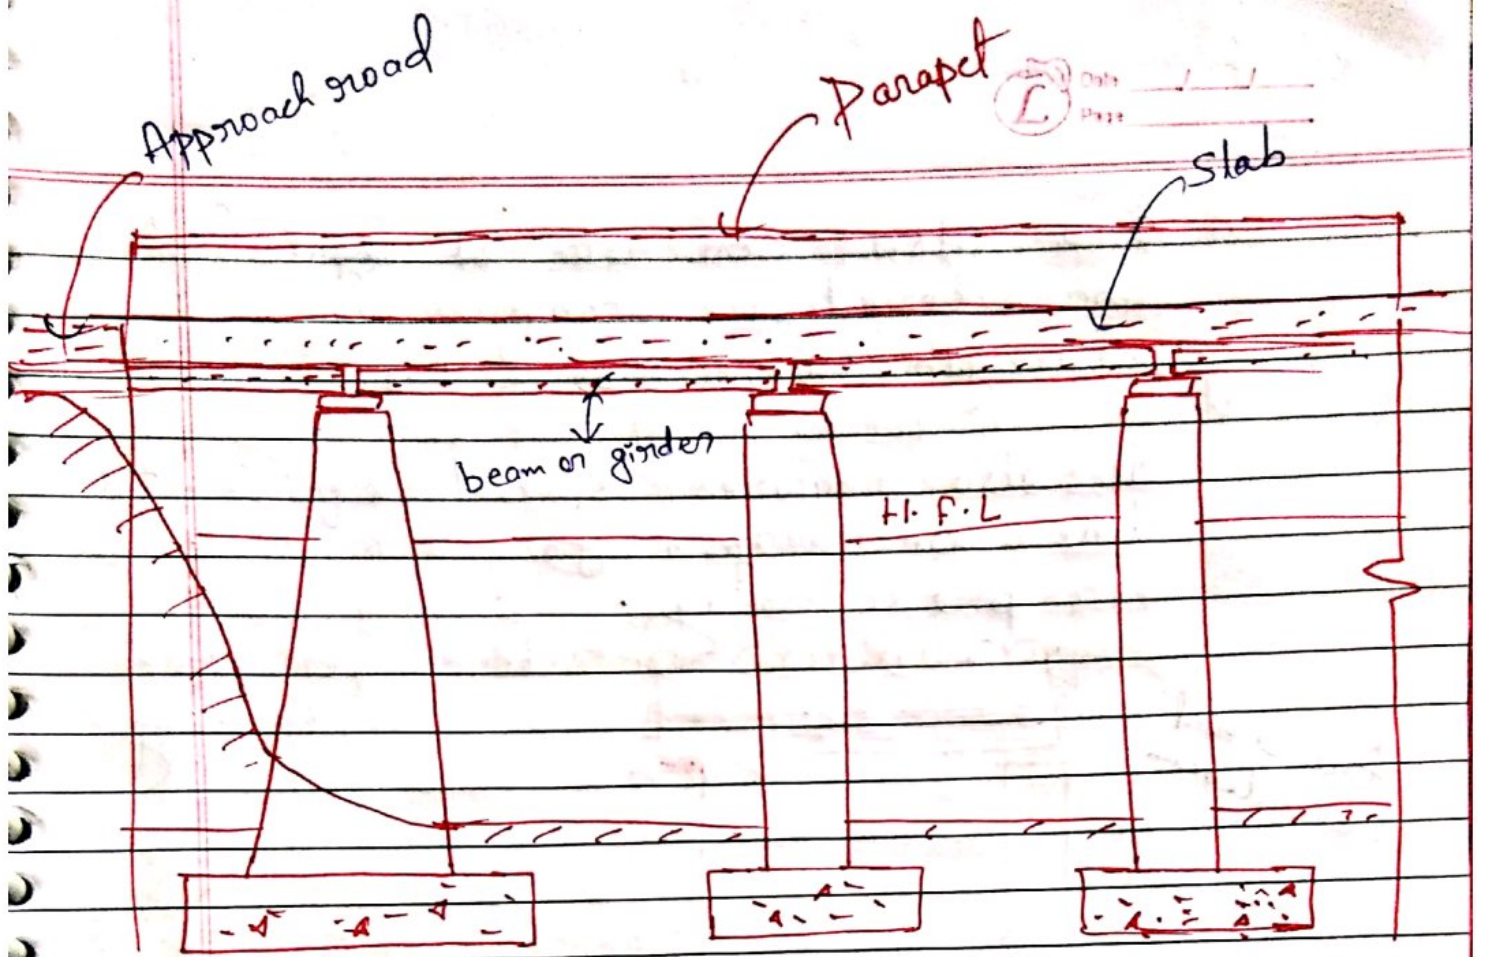 Approach road
Parapet
L
Date
Page
Slab
beam or girder
H.F.L